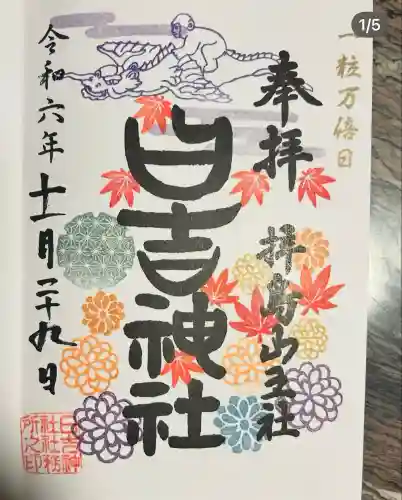 1/5
一粒万倍日
奉拝
拝島山王社
日吉神社
令和六年十一月二十九日
日吉神
社社務
所之印